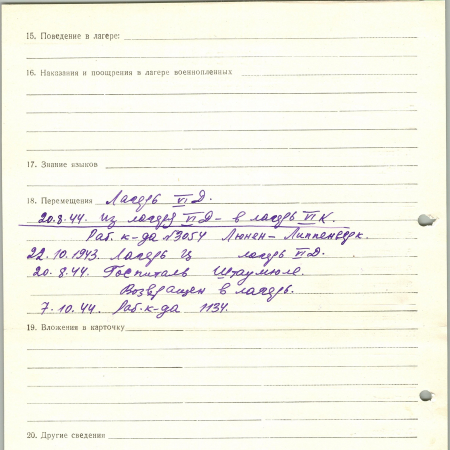 15. Поведение в лагере:
16. Наказания и поощрения в лагере военнопленных
17. Знание языков
18. Перемещения Лагерь VI Д.
20.8.44. из лагеря VI Д - в лагерь VI К.
Раб. к-да №3054 Люнен - Липпенверк.
22.10.1943. Лагерь лагерь VI Д.
20.8.44. Госпиталь Штаумюле.
Возвращен в лагерь.
7.10.44. Раб. к-да 1134.
19. Вложения в карточку
20. Другие сведения